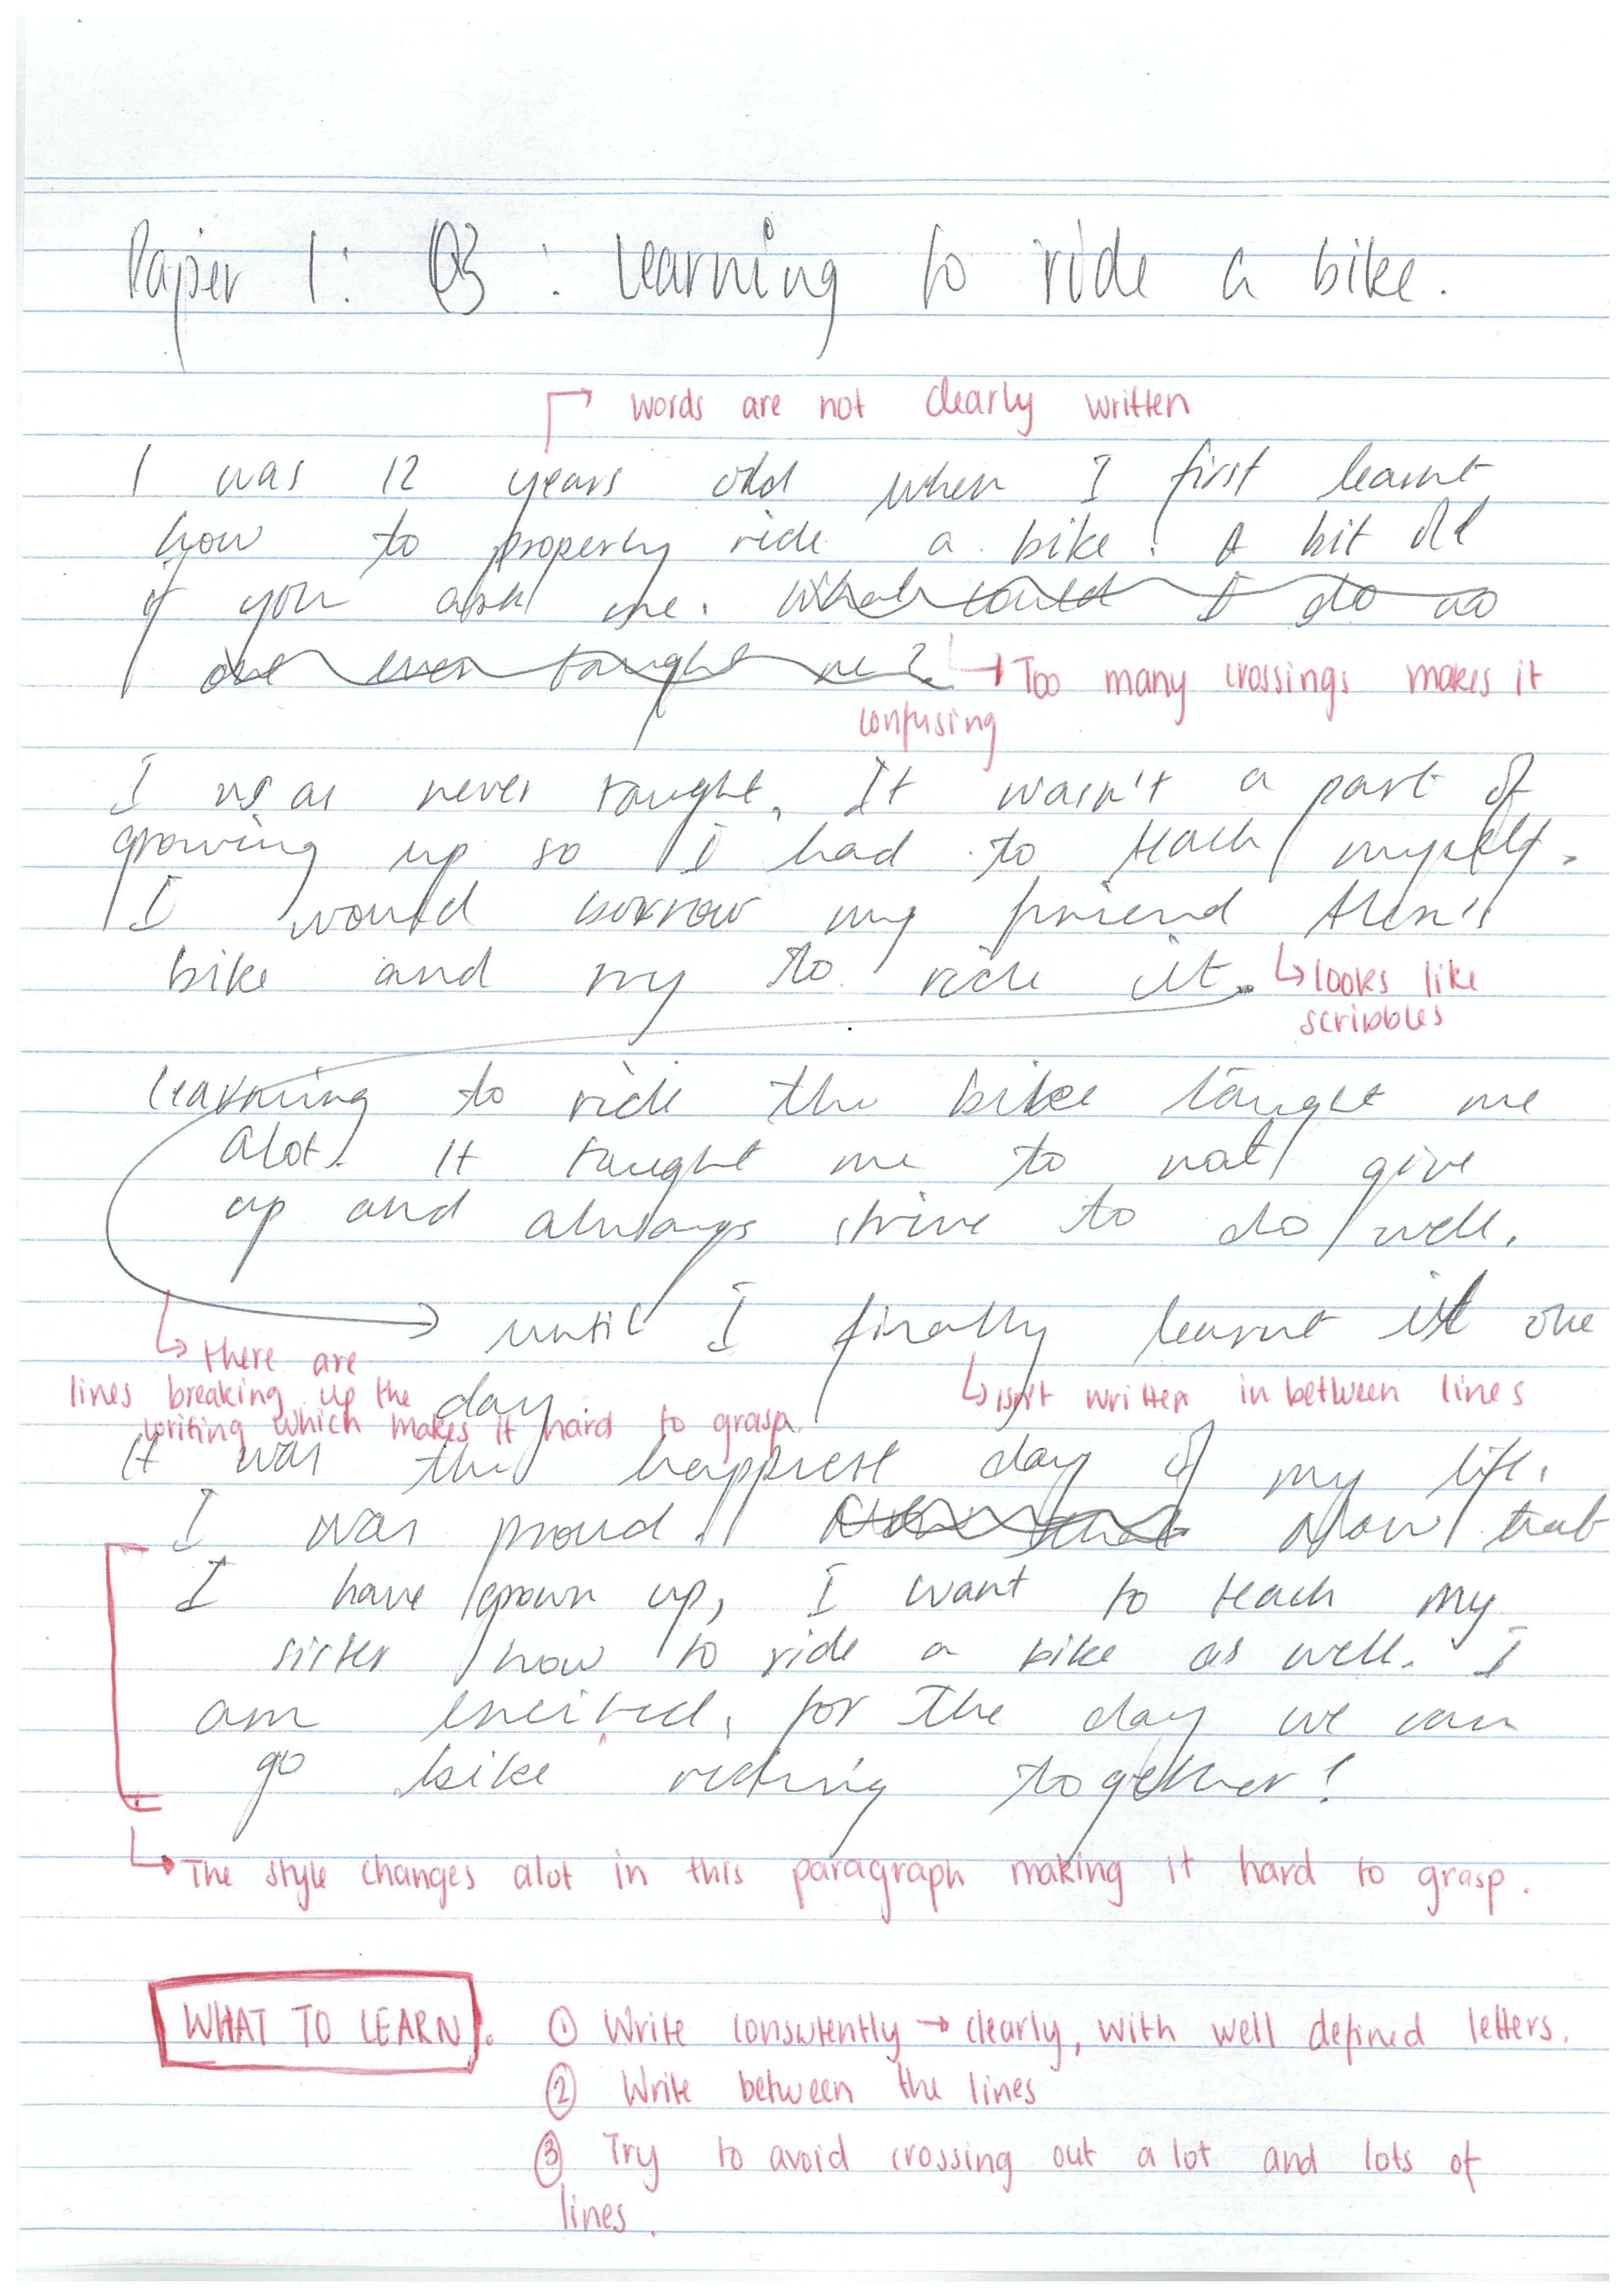 Paper 1: Q3: Learning to ride a bike.
words are not clearly written
I was 12 years old when I first learnt
how to properly ride a bike! A bit old
if you ask me. What could I do no
one even taught me?
Too many crossings makes it
confusing
I was never taught. It wasn't a part of
growing up so I had to teach myself.
I would borrow my friend Alex's
bike and try to ride it.
looks like
scribbles
Learning to ride the bike taught me
alot. It taught me to not give
up and always strive to do well.
until I finally learnt it one
day.
there are
lines breaking up the
writing which makes it hard to grasp.
isn't written in between lines
It was the happiest day of my life.
I was proud. Now that
I have grown up, I want to teach my
sister how to ride a bike as well. I
am excited, for the day we can
go bike riding together!
The style changes alot in this paragraph making it hard to grasp.
WHAT TO LEARN:
① Write consistently → clearly, with well defined letters.
② Write between the lines
③ Try to avoid crossing out a lot and lots of
lines.